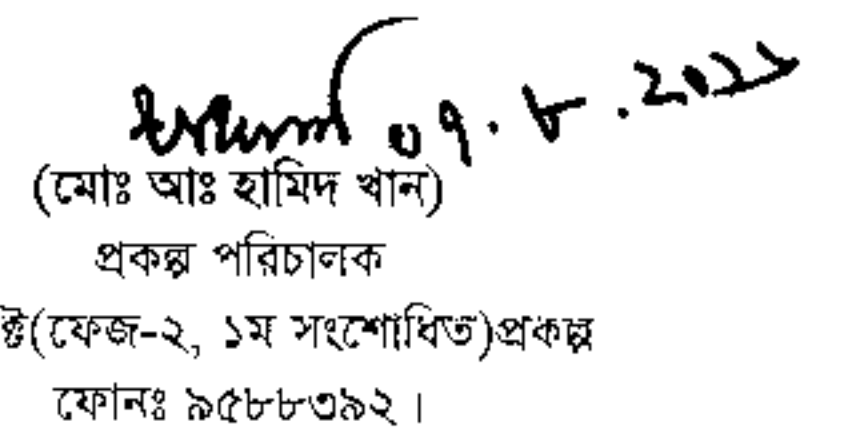 ০৭.৮.২০২১
(মোঃ আঃ হামিদ খান)
প্রকল্প পরিচালক
ক্ট(ফেজ-২, ১ম সংশোধিত)প্রকল্প
ফোনঃ ৯৫৮৮৩৯২।